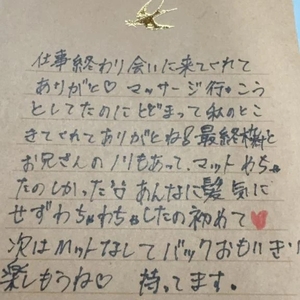 仕事終わり会いに来てくれて
ありがと♡ マッサージ行こう
としてたのにとどまって私のとこ
きてくれてありがとね! 最終枠と
お兄さんのノリもあって、マットめちゃ
たのしかったなあんなに髪気に
せずわちゃわちゃしたの初めて♥
次はMットなしでバックおもいきり
楽しもうね♡ 待ってます。